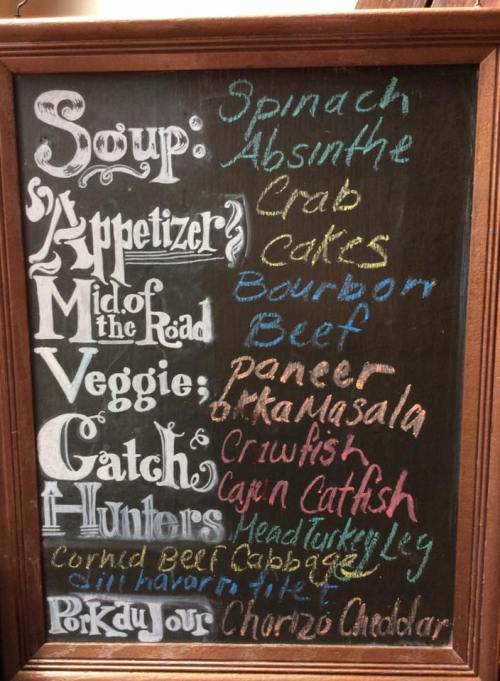 Soup: Spinach
Absinthe
Appetizer Crab
Cakes
Mid.of the Road Bourbon
Beef
Veggie; paneer
okkaMasala
Catch Criwfish
Cajun Catfish
Hunters Mead Turkey Leg
Corned Beef Cabbage
dill havarti filet
Pork du Jour Chorizo Cheddar